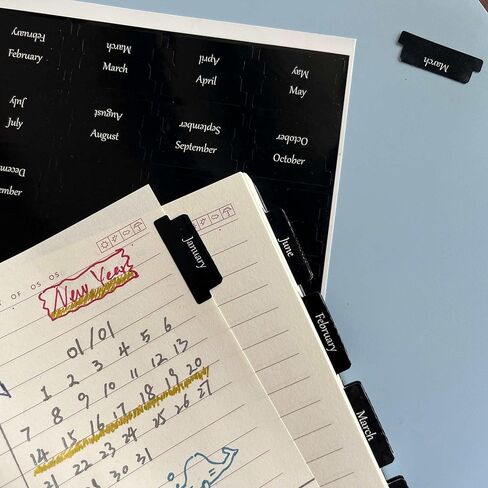 February March April May
February March April May
March
July August September October
July August September October
January
June
New Year
01/01
1 2 3 4 5 6
7 8 9 10 11 12 13
14 15 16 17 18 19 20
21 22 23 24 25 26 27
30 31
February
March